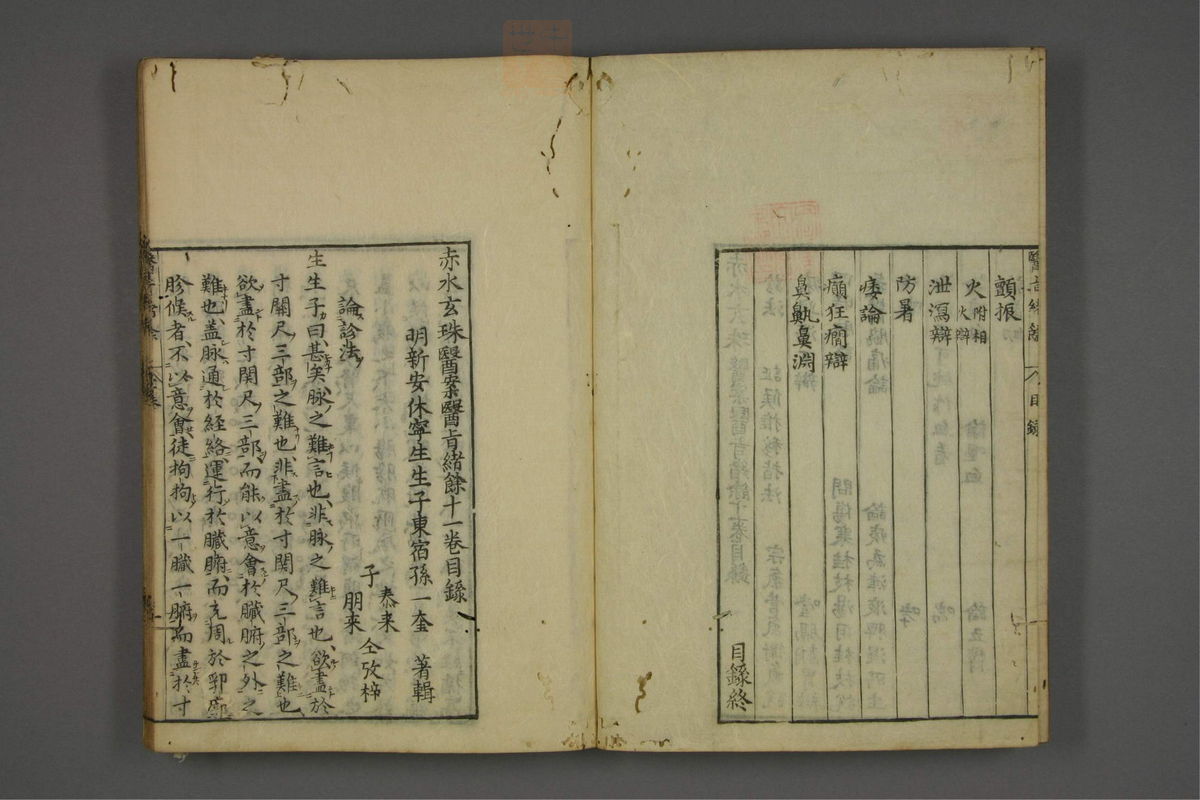 顫振
火 附相火辯
泄瀉辯
防暑
痿論
癲狂癇辯
鼻鼽鼻淵
目錄終
赤水玄珠醫案醫旨緒餘十一卷目錄
明新安休寧生生子東宿孫一奎 著輯
子 泰来 朋来 仝攷梓
論診法
生生子曰甚矣脉之難言也非脉之難言也欲盡於
寸關尺三部之難也非盡於寸関尺三部之難也
欲盡於寸関尺三部而能以意會於臓腑之外之
難也盖脉通於経絡運行於臓腑而充周於郛廓
胗候者不以意會徒拘拘以一臓一腑而盡於寸